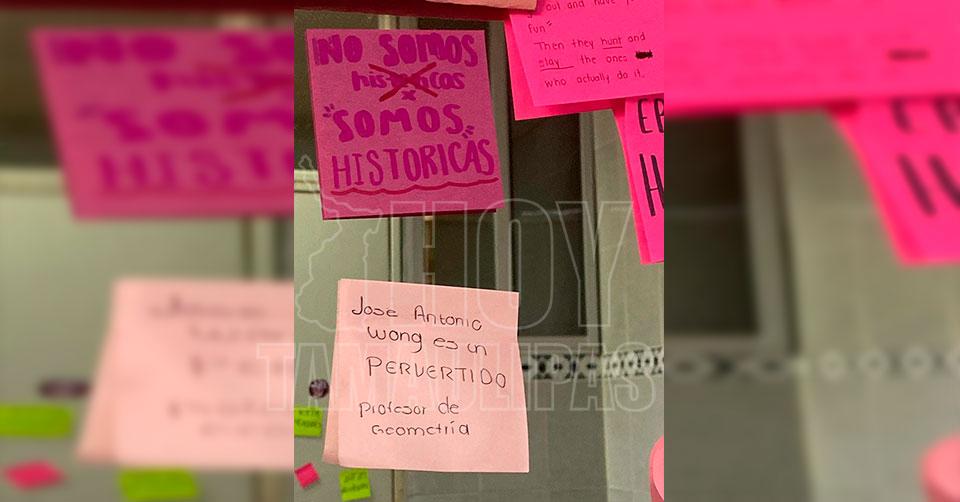 NO SOMOS
historicas
x
"SOMOS"
HISTORICAS
out and have
fun"
Then they hunt and
slay the ones
who actually do it.
Jose Antonio
wong es un
PERVERTIDO
profesor de
Geometría
HOY
TAMAULIPAS